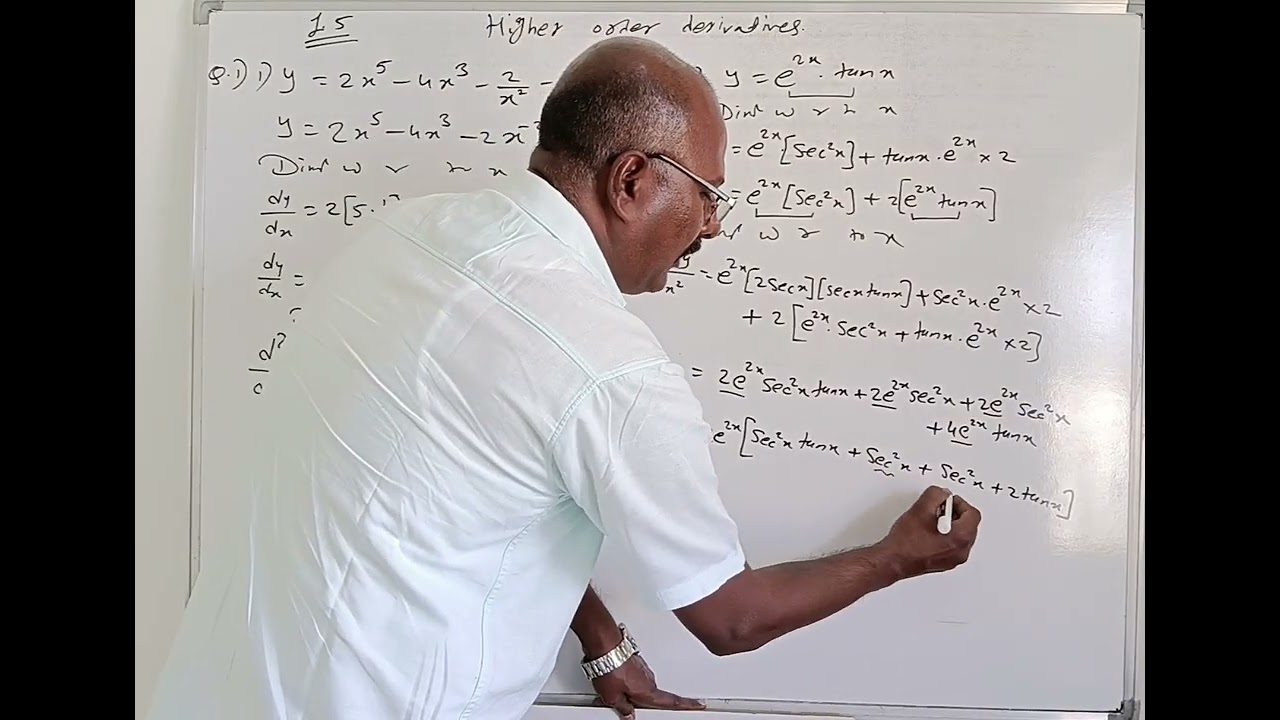 1.5 Higher order derivatives.
Q.1) 1) y = 2x⁵ - 4x³ - 2/x² -
y = 2x⁵ - 4x³ - 2x⁻
Diff w r to x
dy/dx = 2[5.
dy/dx =
d²
y = e²ˣ · tanx
Diff w r to x
= e²ˣ[sec²x] + tanx · e²ˣ × 2
= e²ˣ[sec²x] + 2[e²ˣ tanx]
w r to x
= e²ˣ[2secx][secx tanx] + sec²x · e²ˣ × 2
+ 2[e²ˣ · sec²x + tanx · e²ˣ × 2]
= 2e²ˣ sec²x tanx + 2e²ˣ sec²x + 2e²ˣ sec²x
+ 4e²ˣ tanx
e²ˣ[sec²x tanx + sec²x + sec²x + 2tanx]